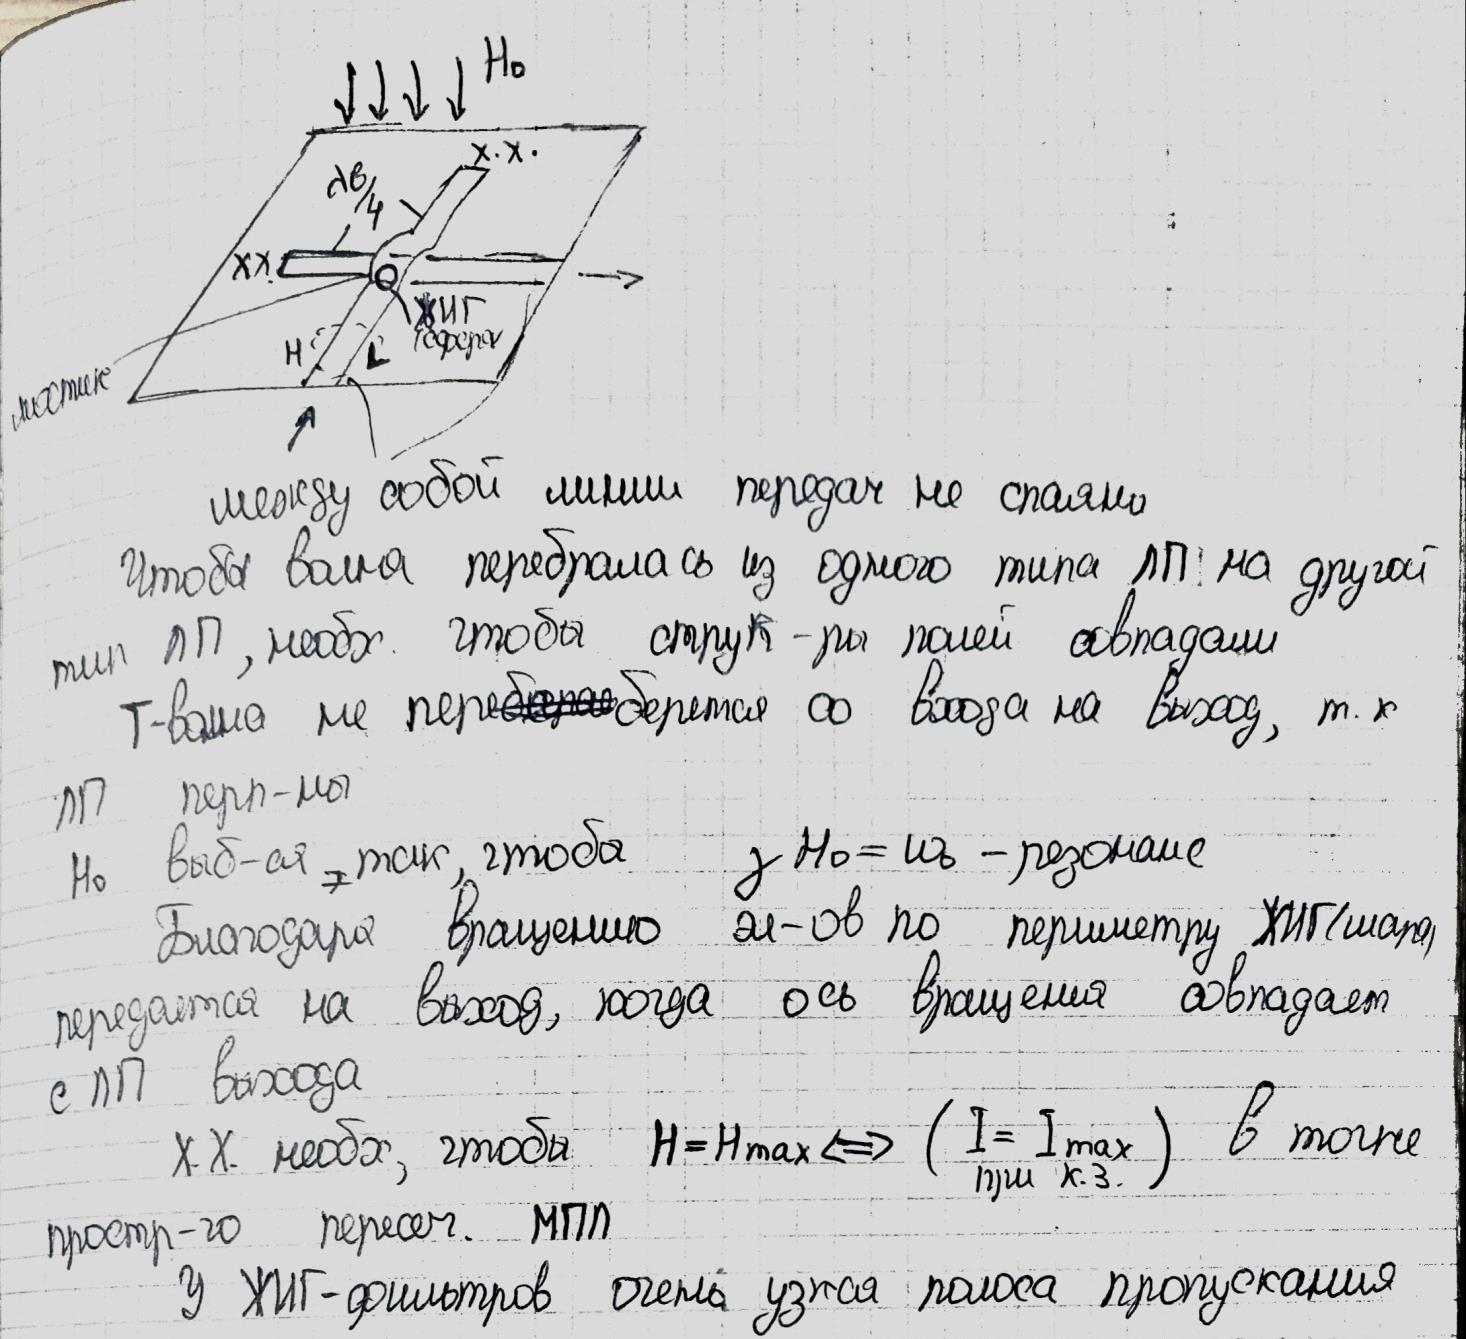 H₀
х.х.
λв/4
хх.
ЖИГ
(сфера)
H
L
мостик
между собой линии передач не спаяны
Чтобы волна перебралась из одного типа ЛП на другой
тип ЛП, необх. чтобы струк-ры полей совпадали
Т-волна не переберется со входа на выход, т.к
ЛП перп-ны
H₀ выб-ая так, чтобы γH₀ = ω₀ - резонанс
Благодаря вращению эл-ов по периметру ЖИГ(шара)
передается на выход, когда ось вращения совпадает
с ЛП выхода
Х.Х. необх, чтобы H = Hmax ⟺ (I = Imax при к.з.) в точке
простр-го пересеч. МПЛ
У ЖИГ-фильтров очень узкая полоса пропускания